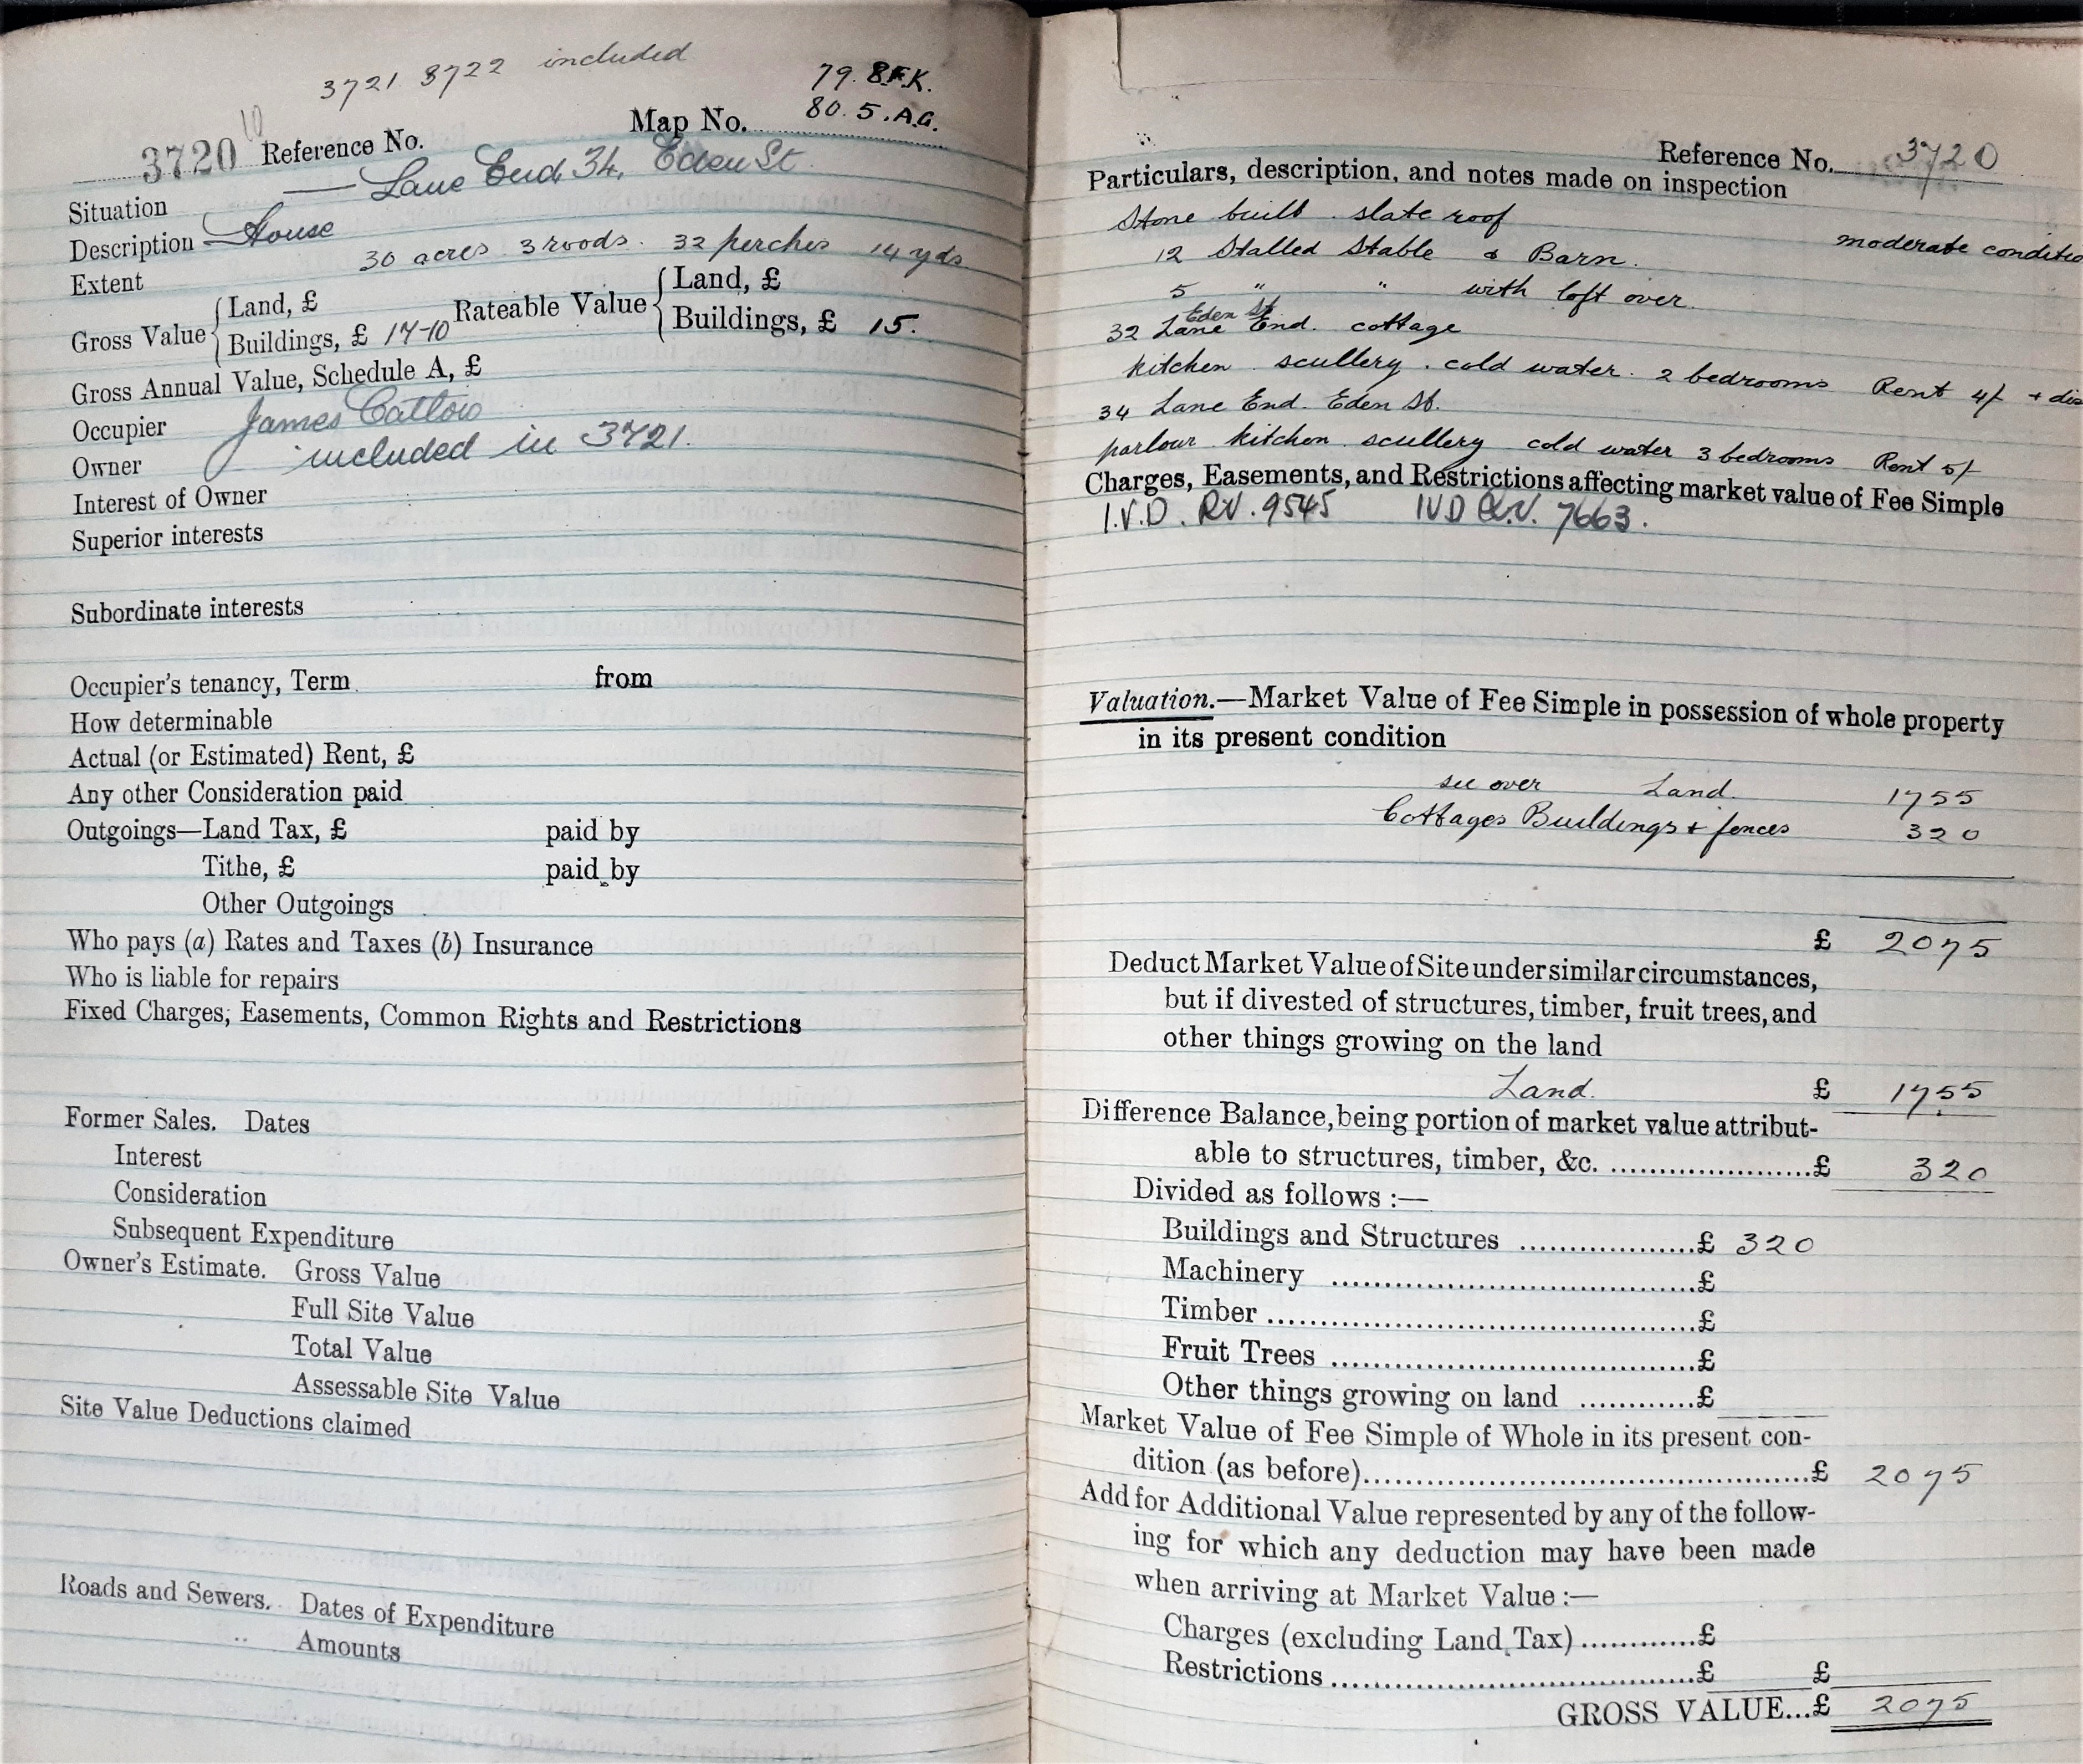 3721 3722 included
79. 8F.K.
80. 5. A.G.
3720 10 Reference No. Map No.
Situation — Lane End 34, Eden St
Description House
Extent 30 acres 3 roods. 32 perches 14 yds
Gross Value { Land, £ Rateable Value { Land, £
Buildings, £ 17-10 Buildings, £ 15.
Gross Annual Value, Schedule A, £
Occupier James Catlow
Owner included in 3721.
Interest of Owner
Superior interests
Subordinate interests
Occupier's tenancy, Term from
How determinable
Actual (or Estimated) Rent, £
Any other Consideration paid
Outgoings—Land Tax, £ paid by
Tithe, £ paid by
Other Outgoings
Who pays (a) Rates and Taxes (b) Insurance
Who is liable for repairs
Fixed Charges, Easements, Common Rights and Restrictions
Former Sales. Dates
Interest
Consideration
Subsequent Expenditure
Owner's Estimate. Gross Value
Full Site Value
Total Value
Assessable Site Value
Site Value Deductions claimed
Roads and Sewers. Dates of Expenditure
" Amounts
Reference No. 3720
Particulars, description, and notes made on inspection
Stone built. slate roof
moderate conditio
12 Stalled Stable & Barn.
5 " " with loft over.
Eden St
32 Lane End. cottage
kitchen. scullery. cold water. 2 bedrooms Rent 4/-
34 Lane End. Eden St.
parlour kitchen. scullery cold water 3 bedrooms Rent 5/-
Charges, Easements, and Restrictions affecting market value of Fee Simple
I.V.D. RV. 9545 IVD R.V. 7663.
Valuation.—Market Value of Fee Simple in possession of whole property
in its present condition
see over Land. 1755
Cottages Buildings + fences 320
£ 2075
Deduct Market Value of Site under similar circumstances,
but if divested of structures, timber, fruit trees, and
other things growing on the land
Land. £ 1755
Difference Balance, being portion of market value attribut-
able to structures, timber, &c. ......................£ 320
Divided as follows :—
Buildings and Structures ...................£ 320
Machinery ........................................£
Timber ...............................................£
Fruit Trees ........................................£
Other things growing on land ............£
Market Value of Fee Simple of Whole in its present con-
dition (as before)................................................£ 2075
Add for Additional Value represented by any of the follow-
ing for which any deduction may have been made
when arriving at Market Value :—
Charges (excluding Land Tax) ............£
Restrictions ........................................£ £
GROSS VALUE...£ 2075